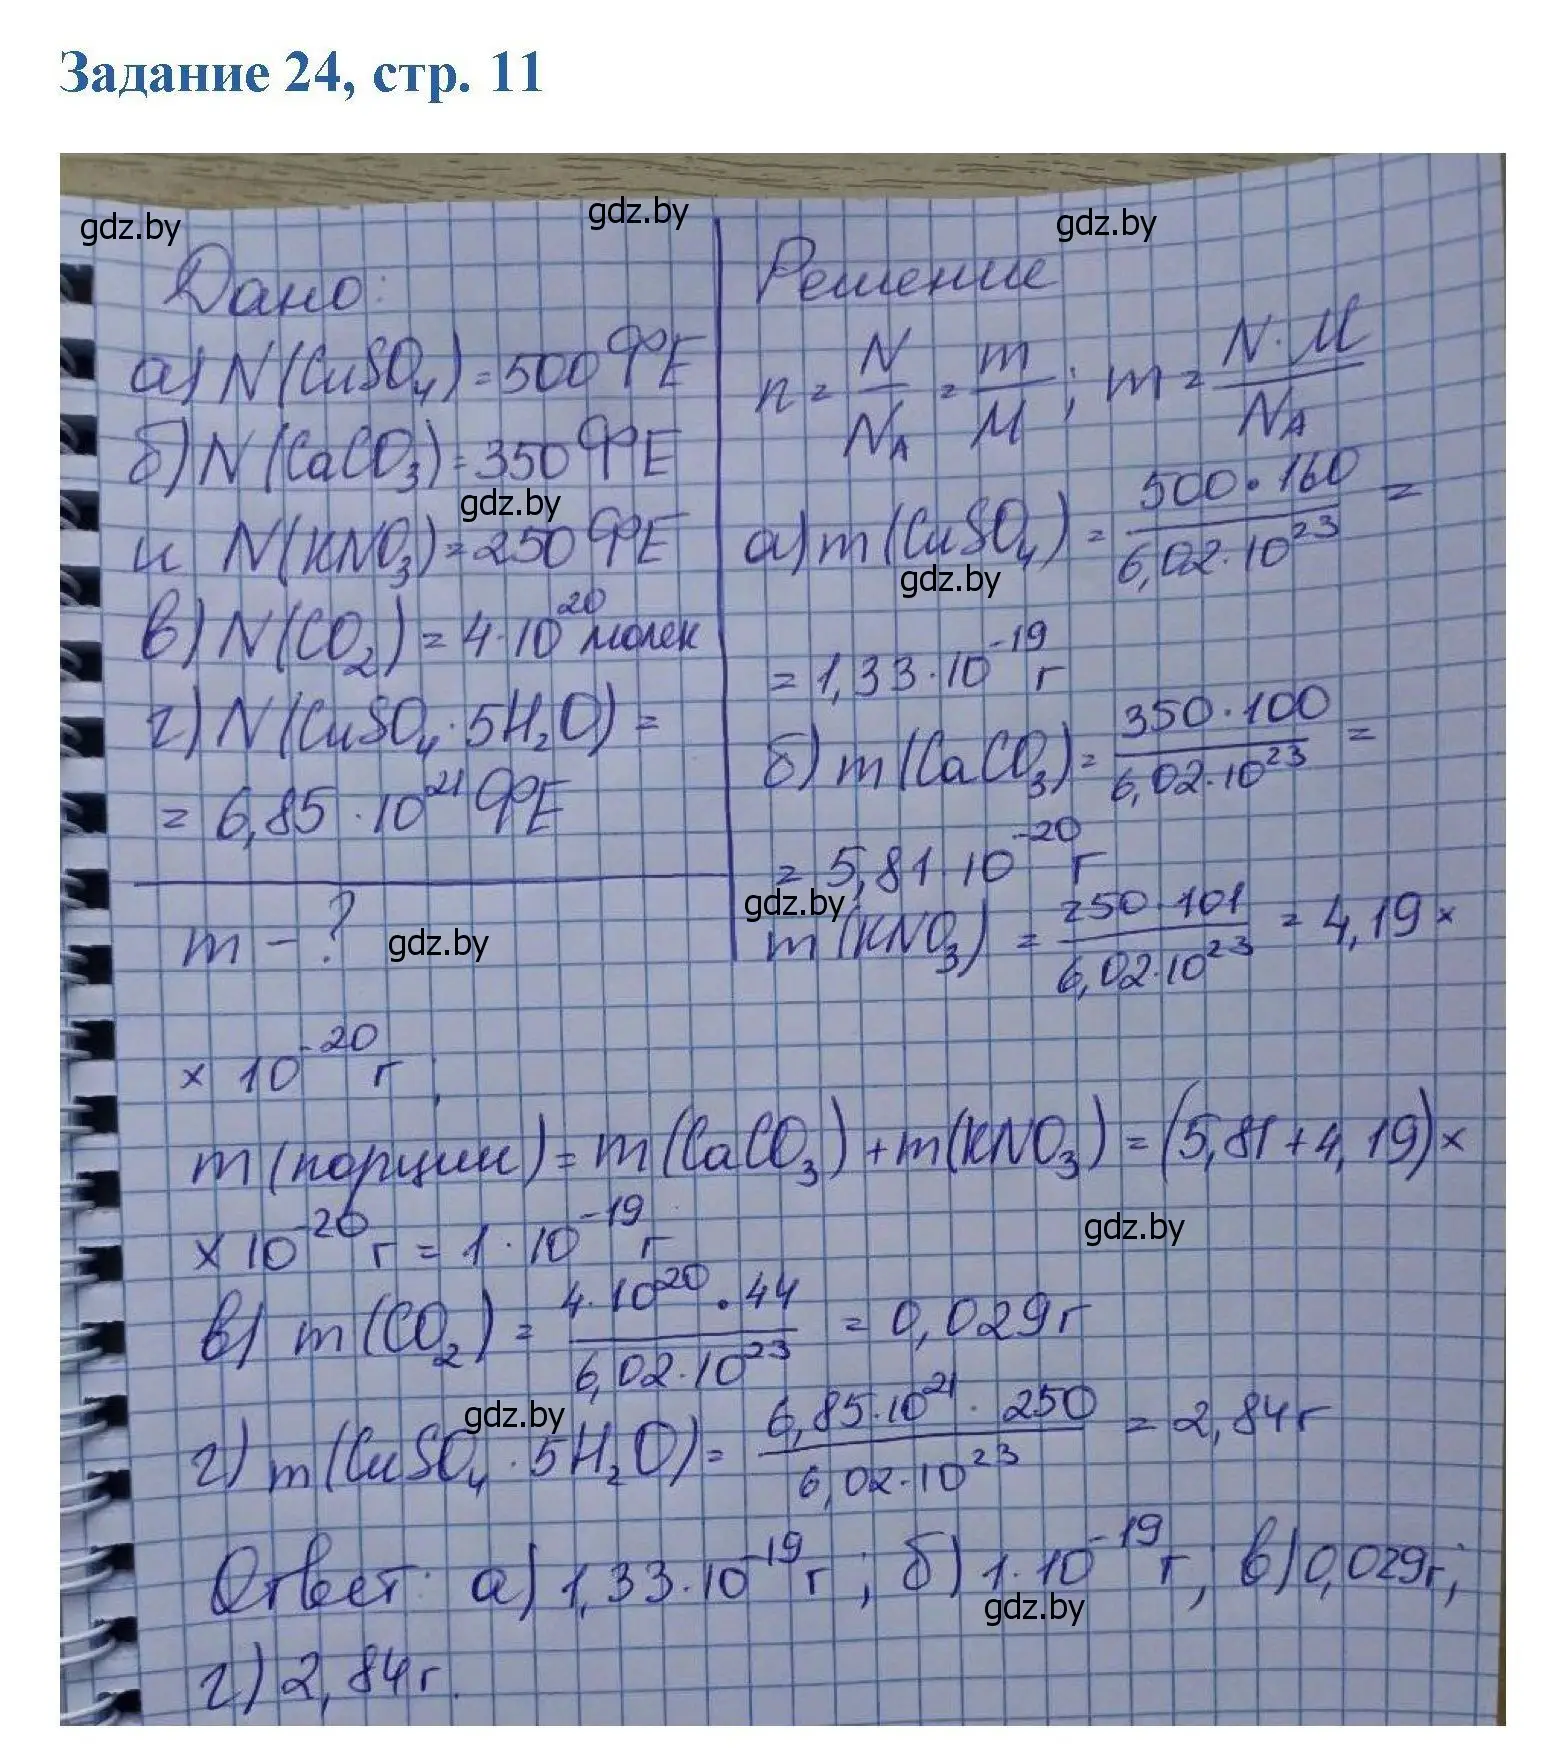 Задание 24, стр. 11
gdz.by
gdz.by
gdz.by
Дано:
а) N(CuSO₄) = 500 ФЕ
б) N(CaCO₃) = 350 ФЕ
gdz.by
и N(KNO₃) = 250 ФЕ
в) N(CO₂) = 4·10²⁰ молек
г) N(CuSO₄·5H₂O) =
= 6,85·10²¹ ФЕ
m - ?
gdz.by
Решение
n = N/N_A = m/M ; m = N·M/N_A
а) m(CuSO₄) = 500·160/6,02·10²³ =
gdz.by
= 1,33·10⁻¹⁹ г
б) m(CaCO₃) = 350·100/6,02·10²³ =
= 5,81·10⁻²⁰ г
gdz.by
m(KNO₃) = 250·101/6,02·10²³ = 4,19 ×
× 10⁻²⁰ г;
m(порции) = m(CaCO₃) + m(KNO₃) = (5,81 + 4,19) ×
× 10⁻²⁰ г = 1·10⁻¹⁹ г
gdz.by
в) m(CO₂) = 4·10²⁰·44/6,02·10²³ = 0,029 г
gdz.by
г) m(CuSO₄·5H₂O) = 6,85·10²¹·250/6,02·10²³ = 2,84 г
Ответ: а) 1,33·10⁻¹⁹ г; б) 1·10⁻¹⁹ г; в) 0,029 г;
gdz.by
г) 2,84 г.